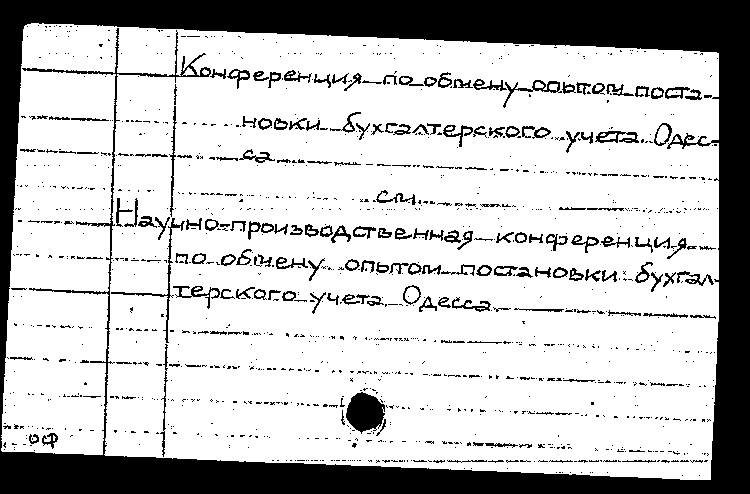 Конференция по обмену опытом поста-
новки бухгалтерского учета. Одес-
са
см.
Научно-производственная конференция
по обмену опытом постановки бухгал-
терского учета. Одесса
оф